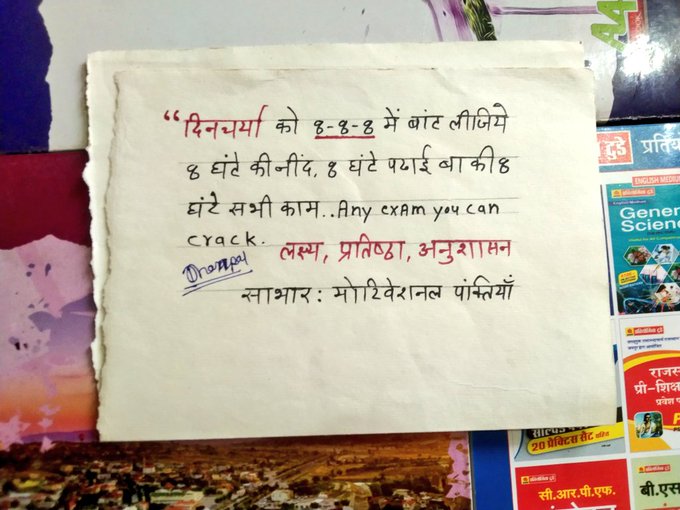 “दिनचर्या को 8-8-8 में बांट लीजिये
8 घंटे की नींद, 8 घंटे पढाई बाकी 8
घंटे सभी काम..Any exam you can
crack. लक्ष्य, प्रतिष्ठा, अनुशासन
साभार: मोटिवेशनल पंक्तियाँ
टुडे प्रतियो
ENGLISH MEDIU
प्रतियोगिता टुडे
Gener
Scienc
राजस
प्री-शिक्ष
प्रवेश प
20 प्रैक्टिस सेट सहित
सी.आर.पी.एफ.
बी.एस